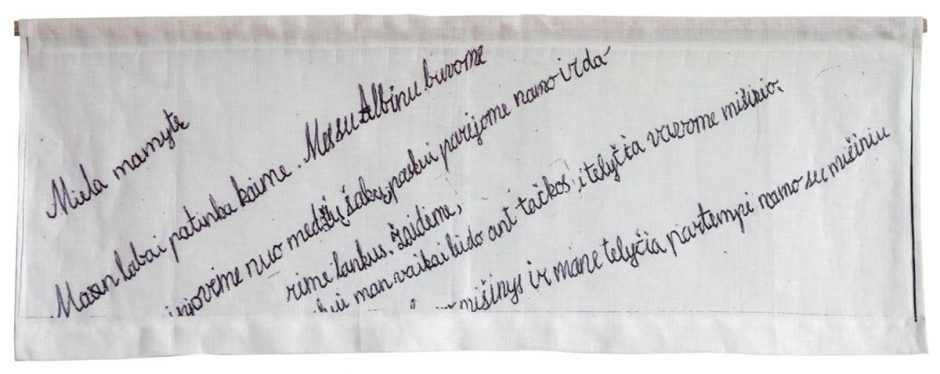 Miela mamytę
Masen labai patinka kaime. Messu Albinu buvome
nuo medžių šakų, paskui parėjome namo ir da-
rime lankus. Žaidėme,
man vaikai lido ant tačkos, i telyčia varome mišinio.
mišinys ir mane telyčia partempi namo su mišiniu